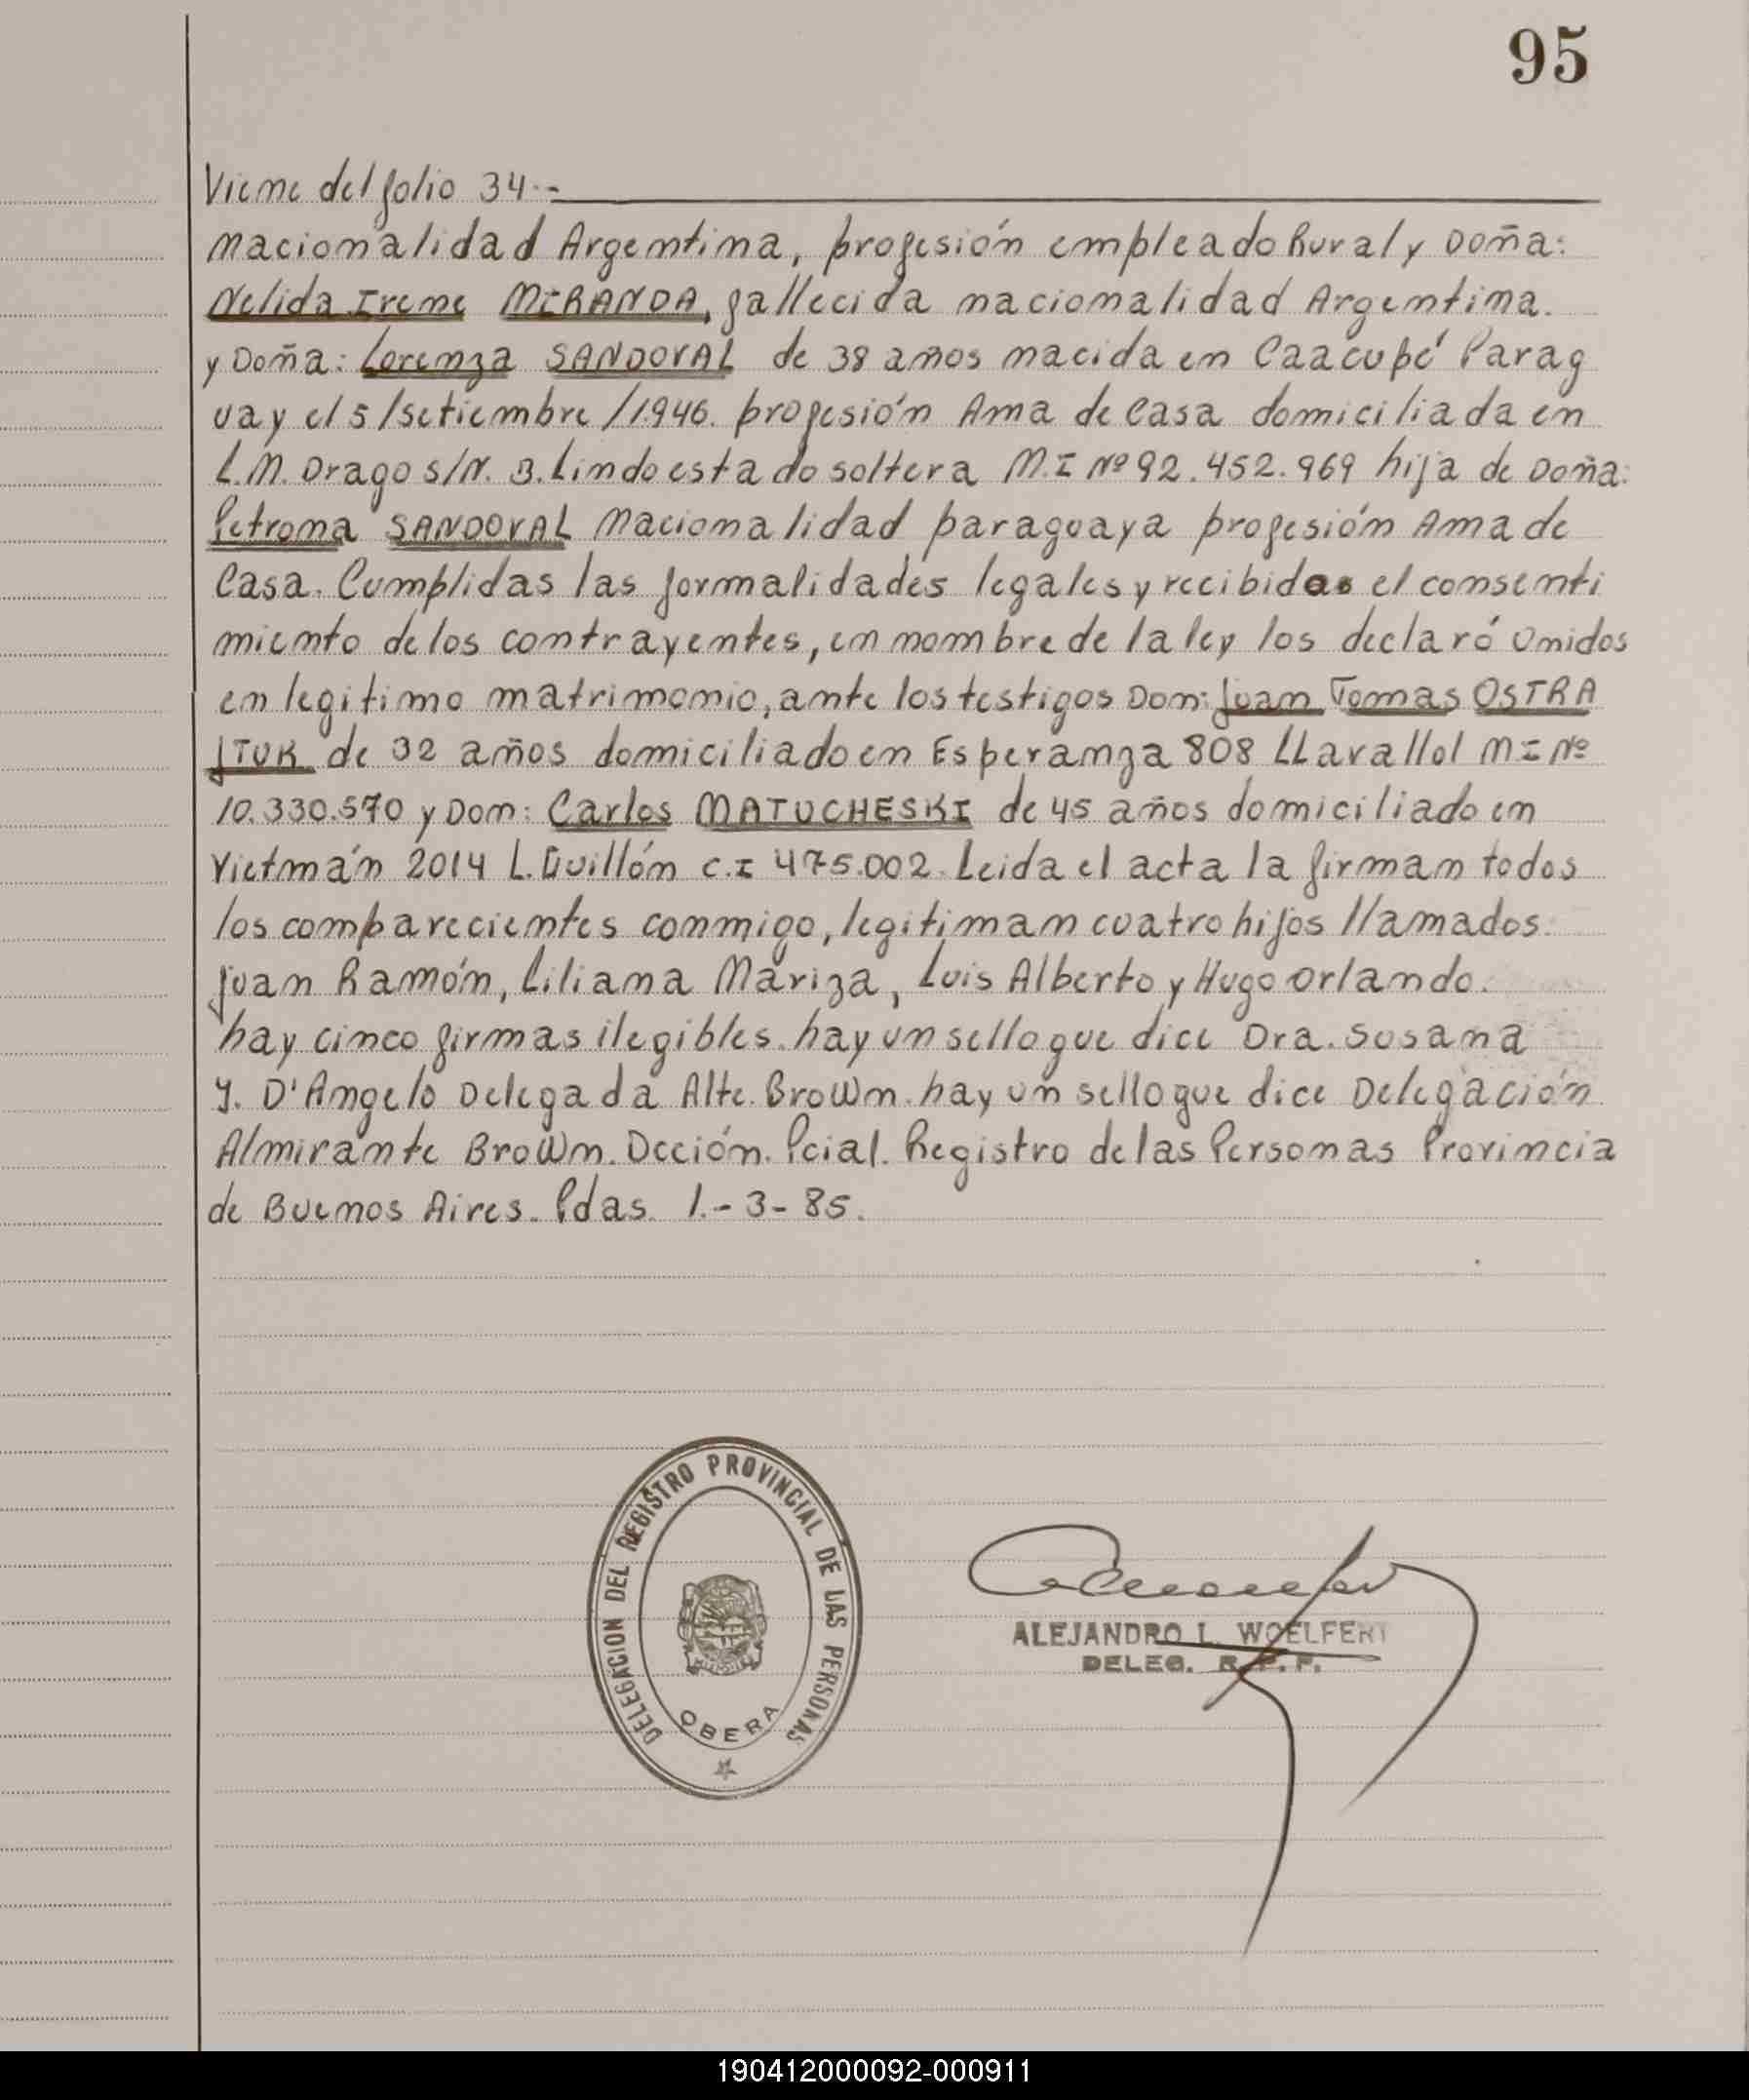 95
Viene del folio 34.-
nacionalidad Argentina, profesión empleado Rural y Doña:
Nelida Irene MIRANDA, fallecida nacionalidad Argentina.
y Doña: Lorenza SANDOVAL de 38 años nacida en Caacupé Parag
uay el 5/Setiembre/1.946. profesión Ama de Casa domiciliada en
L.M. Drago S/N. B. Lindo estado soltera M.I Nº 92.452.969 hija de Doña:
Petrona SANDOVAL nacionalidad paraguaya profesión Ama de
Casa. Cumplidas las formalidades legales y recibidas el consenti
miento de los contrayentes, en nombre de la ley los declaró Unidos
en legitimo matrimonio, ante los testigos Don: Juan Tomas OSTRA
JTUK de 32 años domiciliado en Esperanza 808 LLavallol M I Nº
10.330.570 y Don: Carlos MATUCHESKI de 45 años domiciliado en
Vietmán 2014 L. Guillón C.I 475.002. Leida el acta la firman todos
los comparecientes conmigo, legitiman cuatro hijos llamados:
Juan Ramón, Liliana Mariza, Luis Alberto y Hugo Orlando.
hay cinco firmas ilegibles. hay un sello que dice Dra. Susana
Y. D'Angelo Delegada Alte. Brown. hay un sello que dice Delegación
Almirante Brown. Dcción. Pcial. Registro de las Personas Provincia
de Buenos Aires. Pdas. 1.-3-85.
DELEGACION DEL REGISTRO PROVINCIAL DE LAS PERSONAS
OBERA
ALEJANDRO L. WOELFERT
DELEG. R.P.P.
190412000092-000911